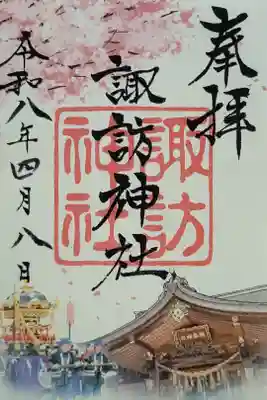 奉拝
諏訪神社
諏訪神社
令和八年四月八日